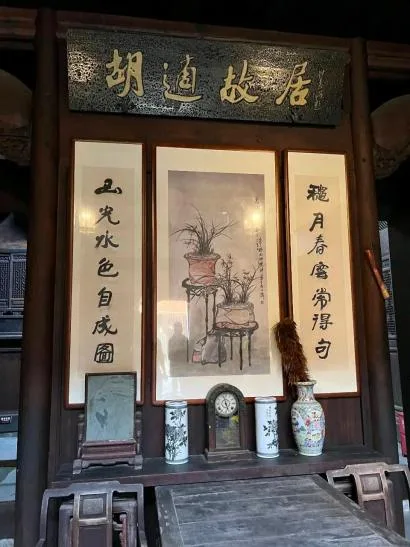 胡適故居
穐月春雲常得句
山光水色自成圖